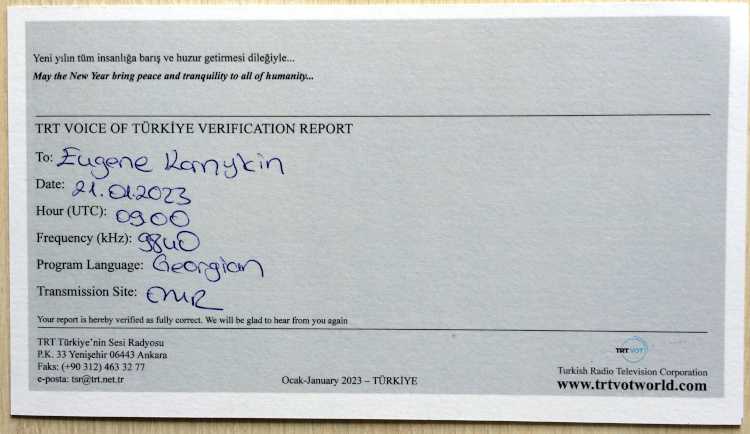 Yeni yılın tüm insanlığa barış ve huzur getirmesi dileğiyle...
May the New Year bring peace and tranquility to all of humanity...
TRT VOICE OF TÜRKİYE VERIFICATION REPORT
To: Eugene Kanykin
Date: 21.01.2023
Hour (UTC): 09.00
Frequency (kHz): 9840
Program Language: Georgian
Transmission Site: EMR
Your report is hereby verified as fully correct. We will be glad to hear from you again
TRT Türkiye'nin Sesi Radyosu
P.K. 33 Yenişehir 06443 Ankara
Faks: (+90 312) 463 32 77
e-posta: tsr@trt.net.tr
Ocak-January 2023 – TÜRKİYE
TRT VOT
Turkish Radio Television Corporation
www.trtvotworld.com